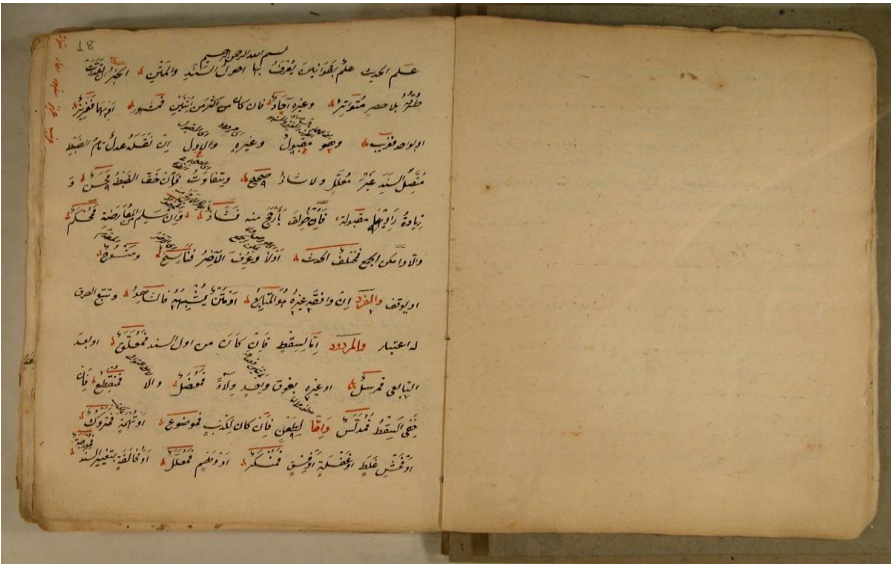 18
بسم الله الرحمن الرحيم
علم الحديث علم بقوانين يعرف بها احوال السند والمتن الخبر ان تعددت
طرقه بلا حصر متواتر وغيره آحاد فان كان من اكثر من اثنين فمشهور او بهما فعزيز
او بواحد فغريب وهو مقبول وغيره والاول ان نقله عدل تام الضبط
متصل السند غير معلل ولا شاذ صحيح ويتفاوت فان خف الضبط فحسن و
زيادة راويهما مقبولة فان خولف بارجح منه فشاذ وان سلم من المعارضة فمحكم
والا وامكن الجمع فمختلف الحديث اولا وعرف الآخر فناسخ ومنسوخ
او يوقف والفرد ان وافقه غيره فهو المتابع او متن يشبهه فالشاهد وتتبع الطرق
له اعتبار والمردود اما لسقط فان كان من اول السند فمعلق او بعد
التابعي فمرسل او غيره بفوق واحد ولاء فمعضل والا فمنقطع فان
خفي السقط فمدلس واما لطعن فان كان لكذب فموضوع او تهمة فمتروك
او فحش غلط او غفلة او فسق فمنكر او وهم فمعلل او مخالفة بتغيير السند